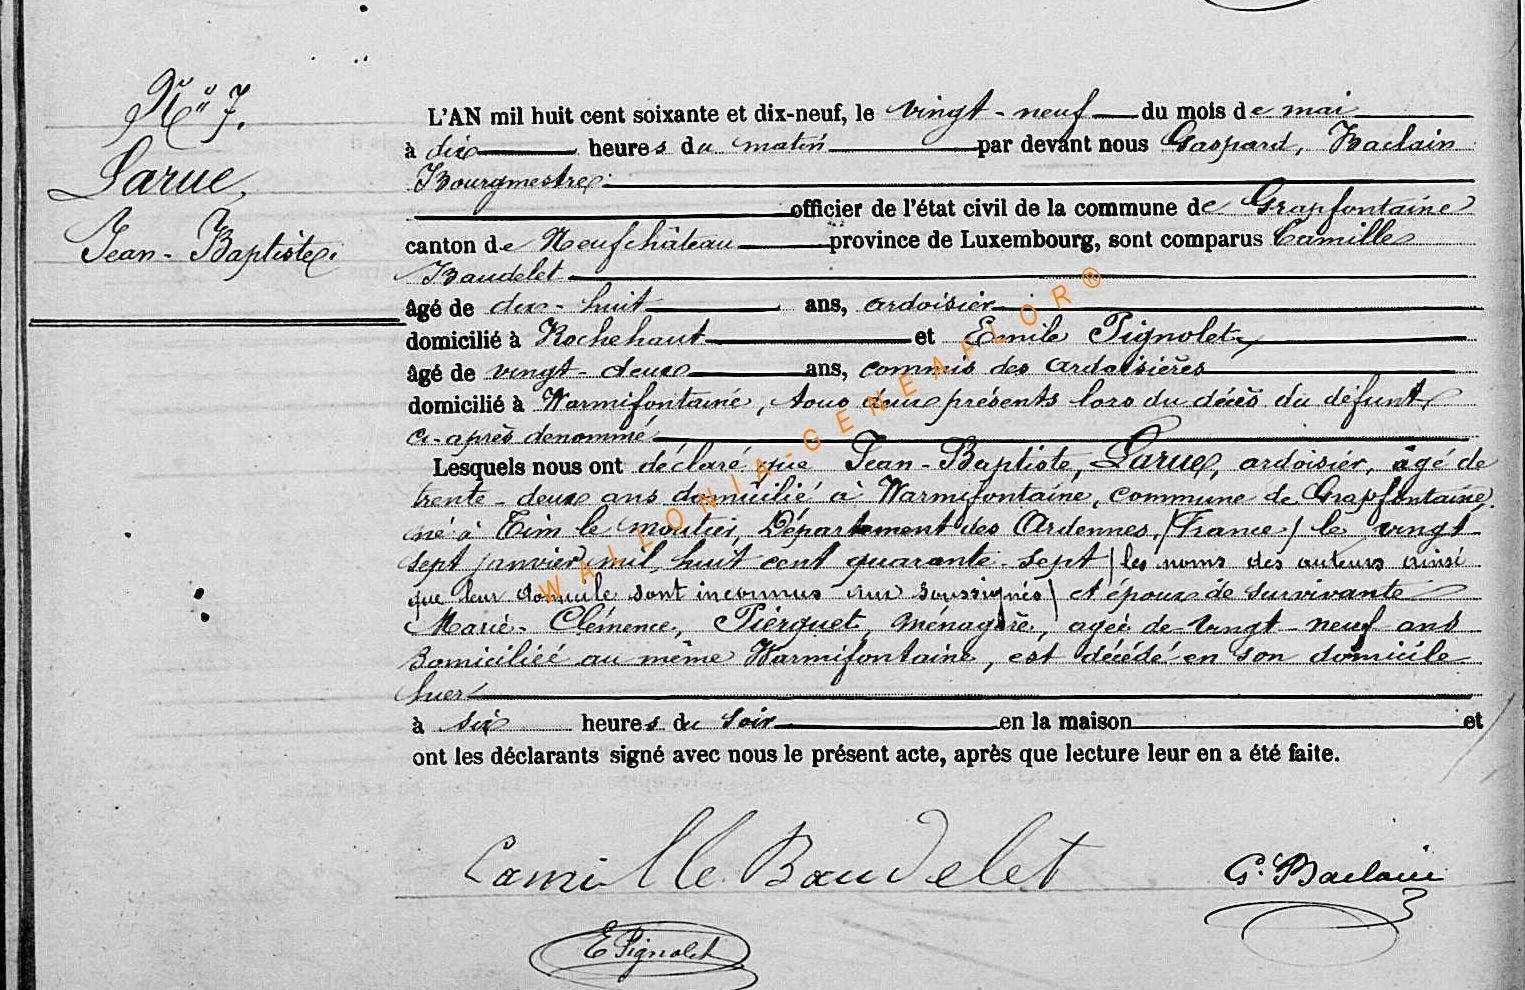 N° 7.
Larue,
Jean-Baptiste.
L'AN mil huit cent soixante et dix-neuf, le vingt-neuf du mois de mai
à dix heures du matin par devant nous Gaspard, Baclain
Bourgmestre
officier de l'état civil de la commune de Grapfontaine
canton de Neufchâteau province de Luxembourg, sont comparus Camille
Baudelet
âgé de dix-huit ans, ardoisier
domicilié à Rochehaut et Emile Pignolet
âgé de vingt-deux ans, commis des ardoisières
domicilié à Warmifontaine, tous deux présents lors du décès du défunt
ci-après denommé
Lesquels nous ont déclaré que Jean-Baptiste, Larue, ardoisier, âgé de
trente-deux ans domicilié à Warmifontaine, commune de Grapfontaine,
né à Tim le moutier, Département des Ardennes, (France) le vingt
sept janvier mil huit cent quarante-sept (les noms des auteurs ainsi
que leur domicile sont inconnus aux soussignés) et époux de survivante
Marie-Clémence, Pierquet, ménagère, agée de vingt-neuf ans
domiciliée au même Warmifontaine, est décédé en son domicile
hier
à six heures du soir en la maison et
ont les déclarants signé avec nous le présent acte, après que lecture leur en a été faite.
Camille Baudelet
G. Baclain
E Pignolet
WALLONIA-GENEAFLOR®